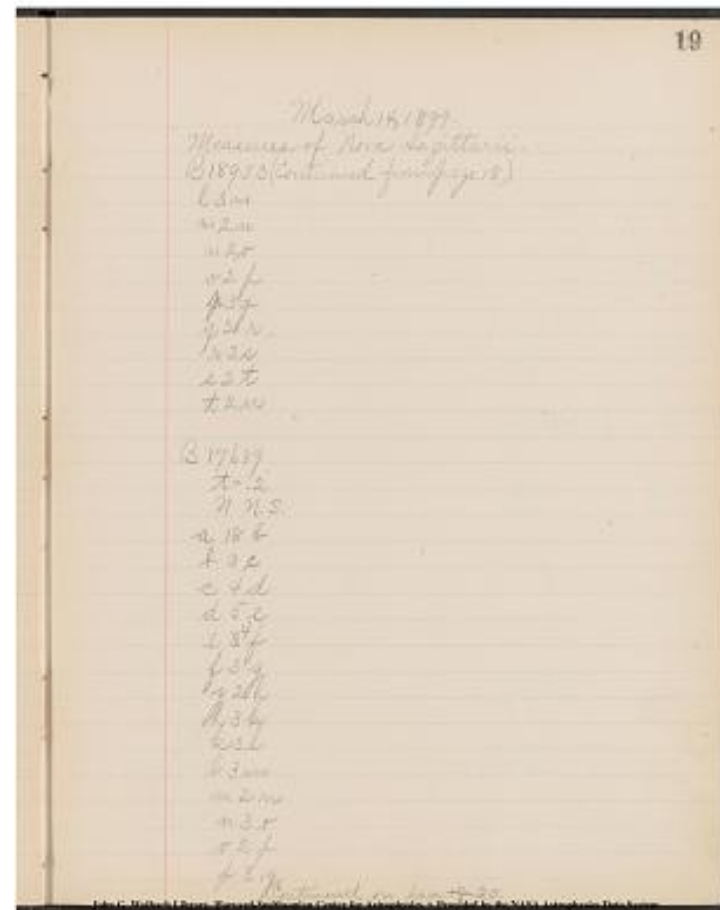 19
March 18, 1899.
Measures of Nova Sagittarii.
B (Continued from page 18)
l 3 m
m 2 n
n 2 o
o 2 p
p 3 q
q 3 r
r 2 s
s 2 t
t 2 u
B
t = .2
N N.S.
a 18 b
c 4 d
d 5 e
f 3 g
g 2 h
h 3 k
k 3 l
l 3 m
m 2 n
n 3 o
o 2 p
Continued on